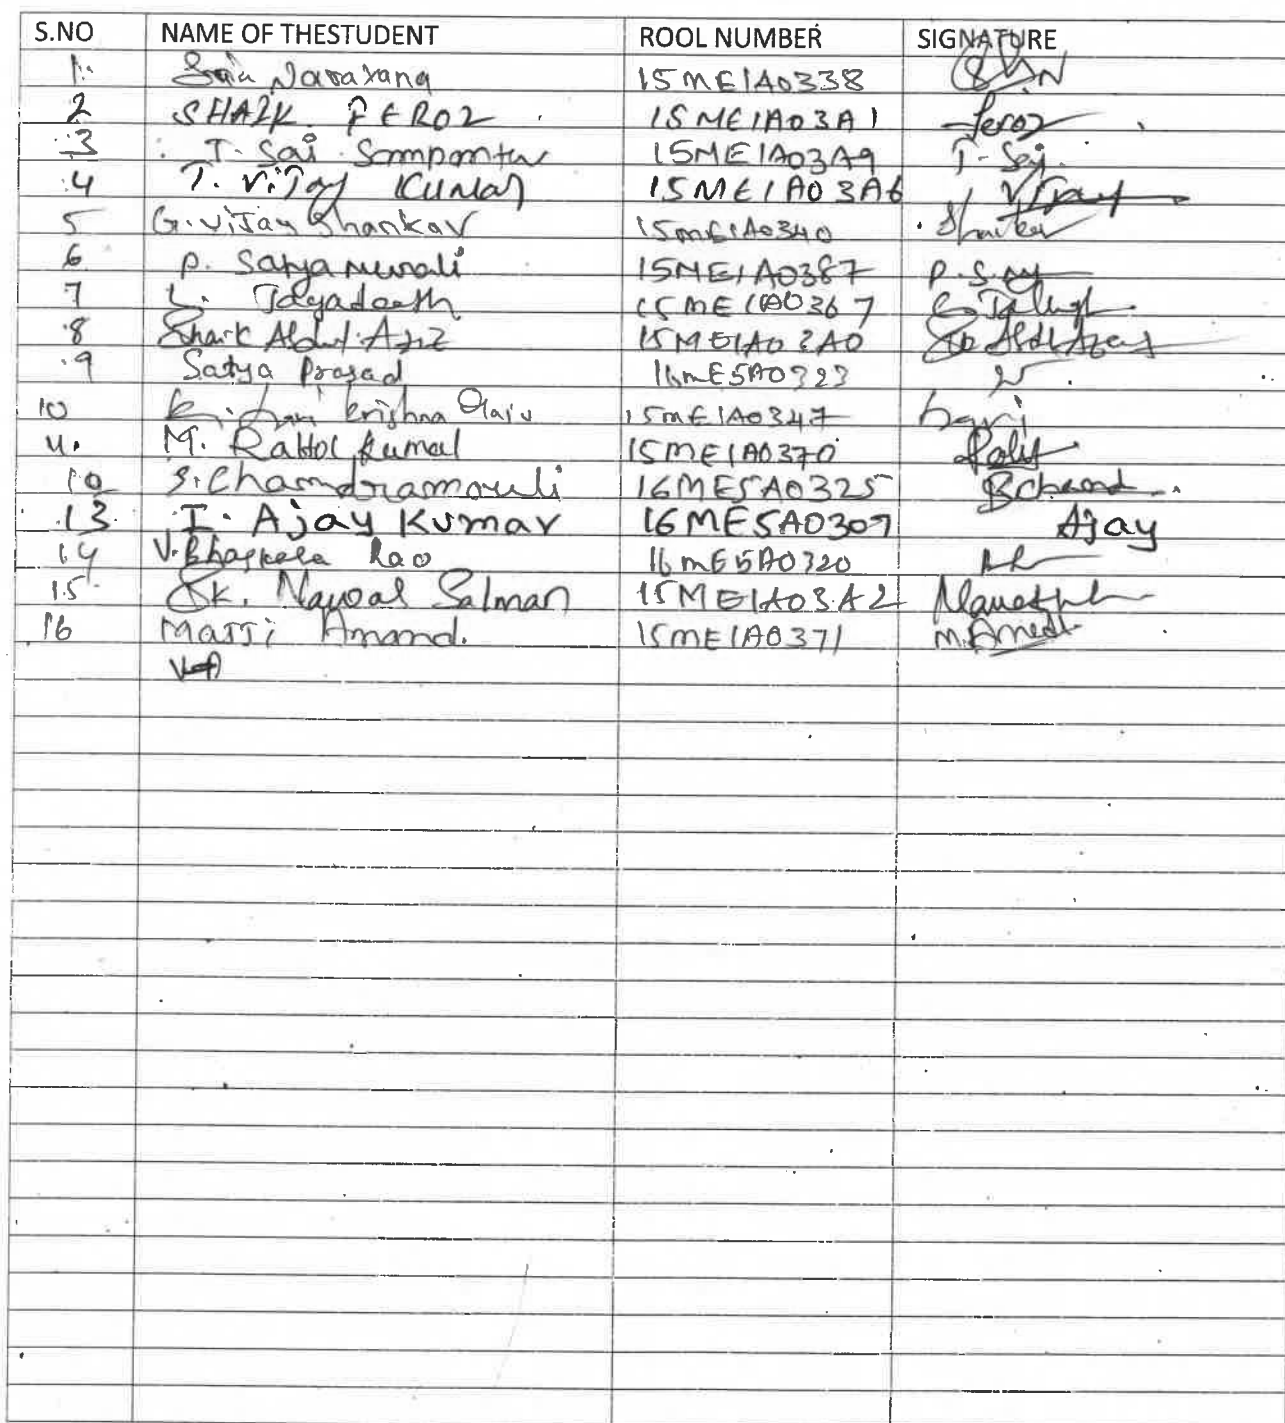 S.NO NAME OF THESTUDENT ROOL NUMBER SIGNATURE
1. Narayana 15ME1A0338
2 SHAIK FEROZ 15ME1A03A1 feroz
3 T. Sai 15ME1A03A9 T-Sai
4 T. ViJay Kumar 15ME1A03A6 Vijay
5 G. viJay Shankar 15mE1A0340 Shankar
6 P. Satya Murali 15ME1A0387 P.S
7 L. 15ME1A0367
8 Shaik Abdul Aziz 15ME1A03A0
9 Satya Prasad 16mE5A0323
10 K. hari krishna 15mE1A0347 hari
11. M. Kumar 15ME1A0370
S. Chandramouli 16ME5A0325
13 I. Ajay Kumar 16ME5A0307 Ajay
14 V. Bhaskara Rao 16mE5A0320
15 SK. Nawaz Salman 15ME1A03A2
16 Majji Anand. 15mE1A0371